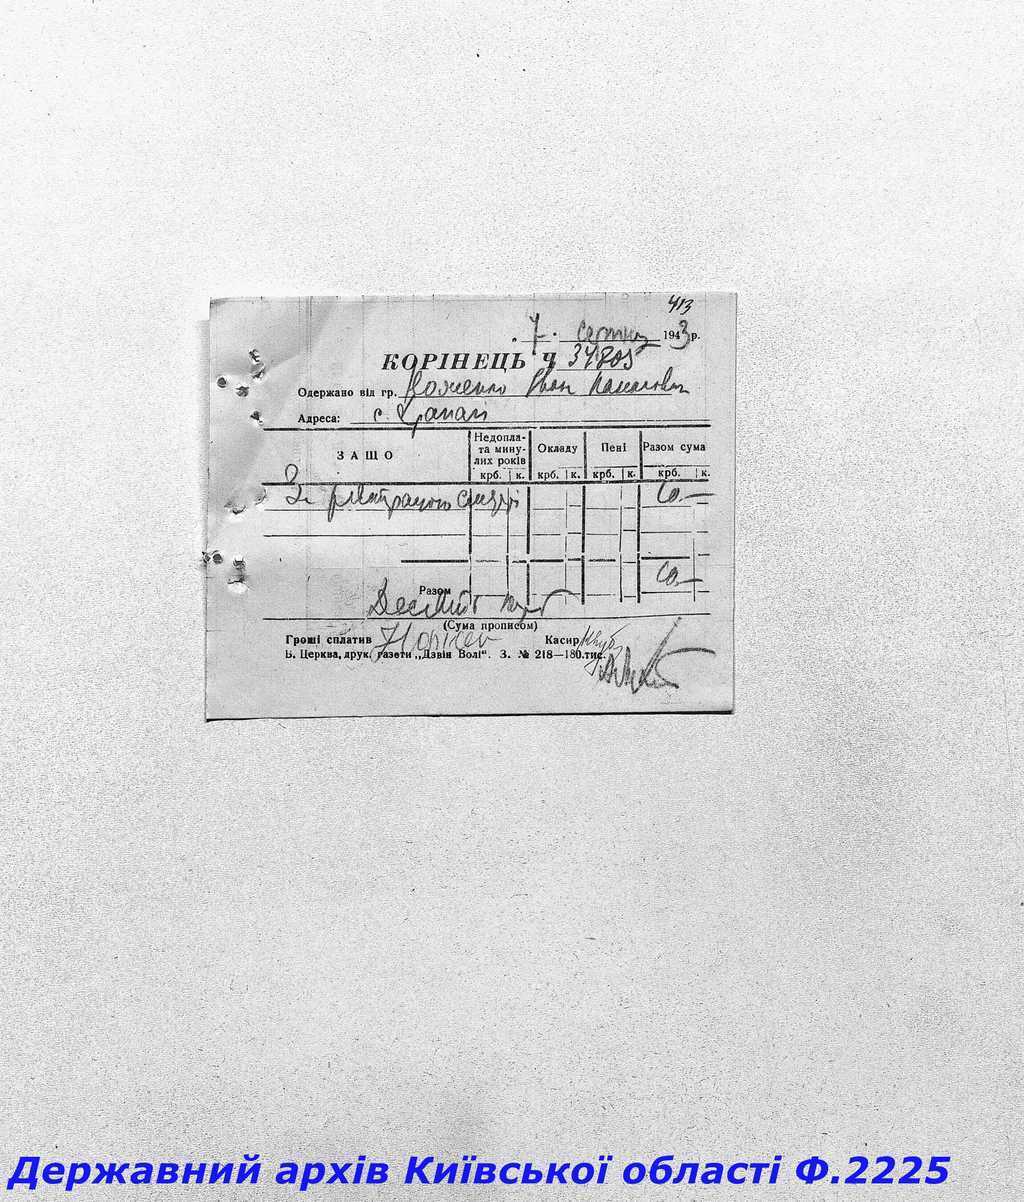 413
7. серпня 1943 р.
КОРІНЕЦЬ Ч 34805
Одержано від гр. Іван
Адреса: с.
ЗА ЩО
Недоплата минулих років
Окладу
Пені
Разом сума
крб. к. крб. к. крб. к. крб. к.
За 10.—
10.—
Разом
Десять карб
(Сума прописом)
Гроші сплатив
Касир
Б. Церква, друк. газети „Дзвін Волі“. З. № 218—180.тис.
Державний архів Київської області Ф.2225